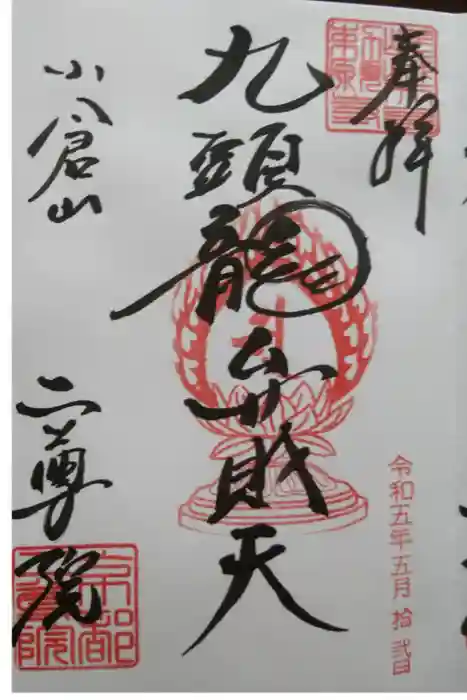 奉拝
九頭龍弁財天
令和五年五月拾弐日
小倉山
二尊院
京都
二尊院